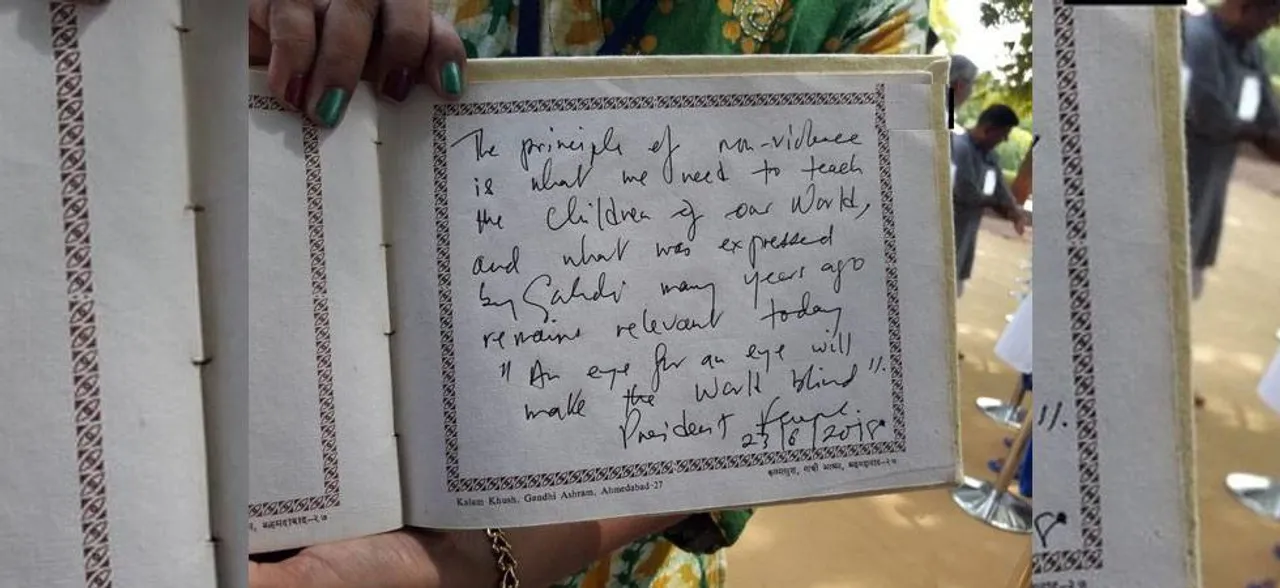 The principle of non-violence
is what we need to teach
the children of our World,
and what was expressed
by Gandhi many years ago
remains relevant today
"An eye for an eye will
make the World blind".
President Faure.
23/6/2018
Kalam Khush, Gandhi Ashram, Ahmedabad-27
कलमखुश, गांधी आश्रम, अहमदाबाद-२७
, अहमदाबाद-२७